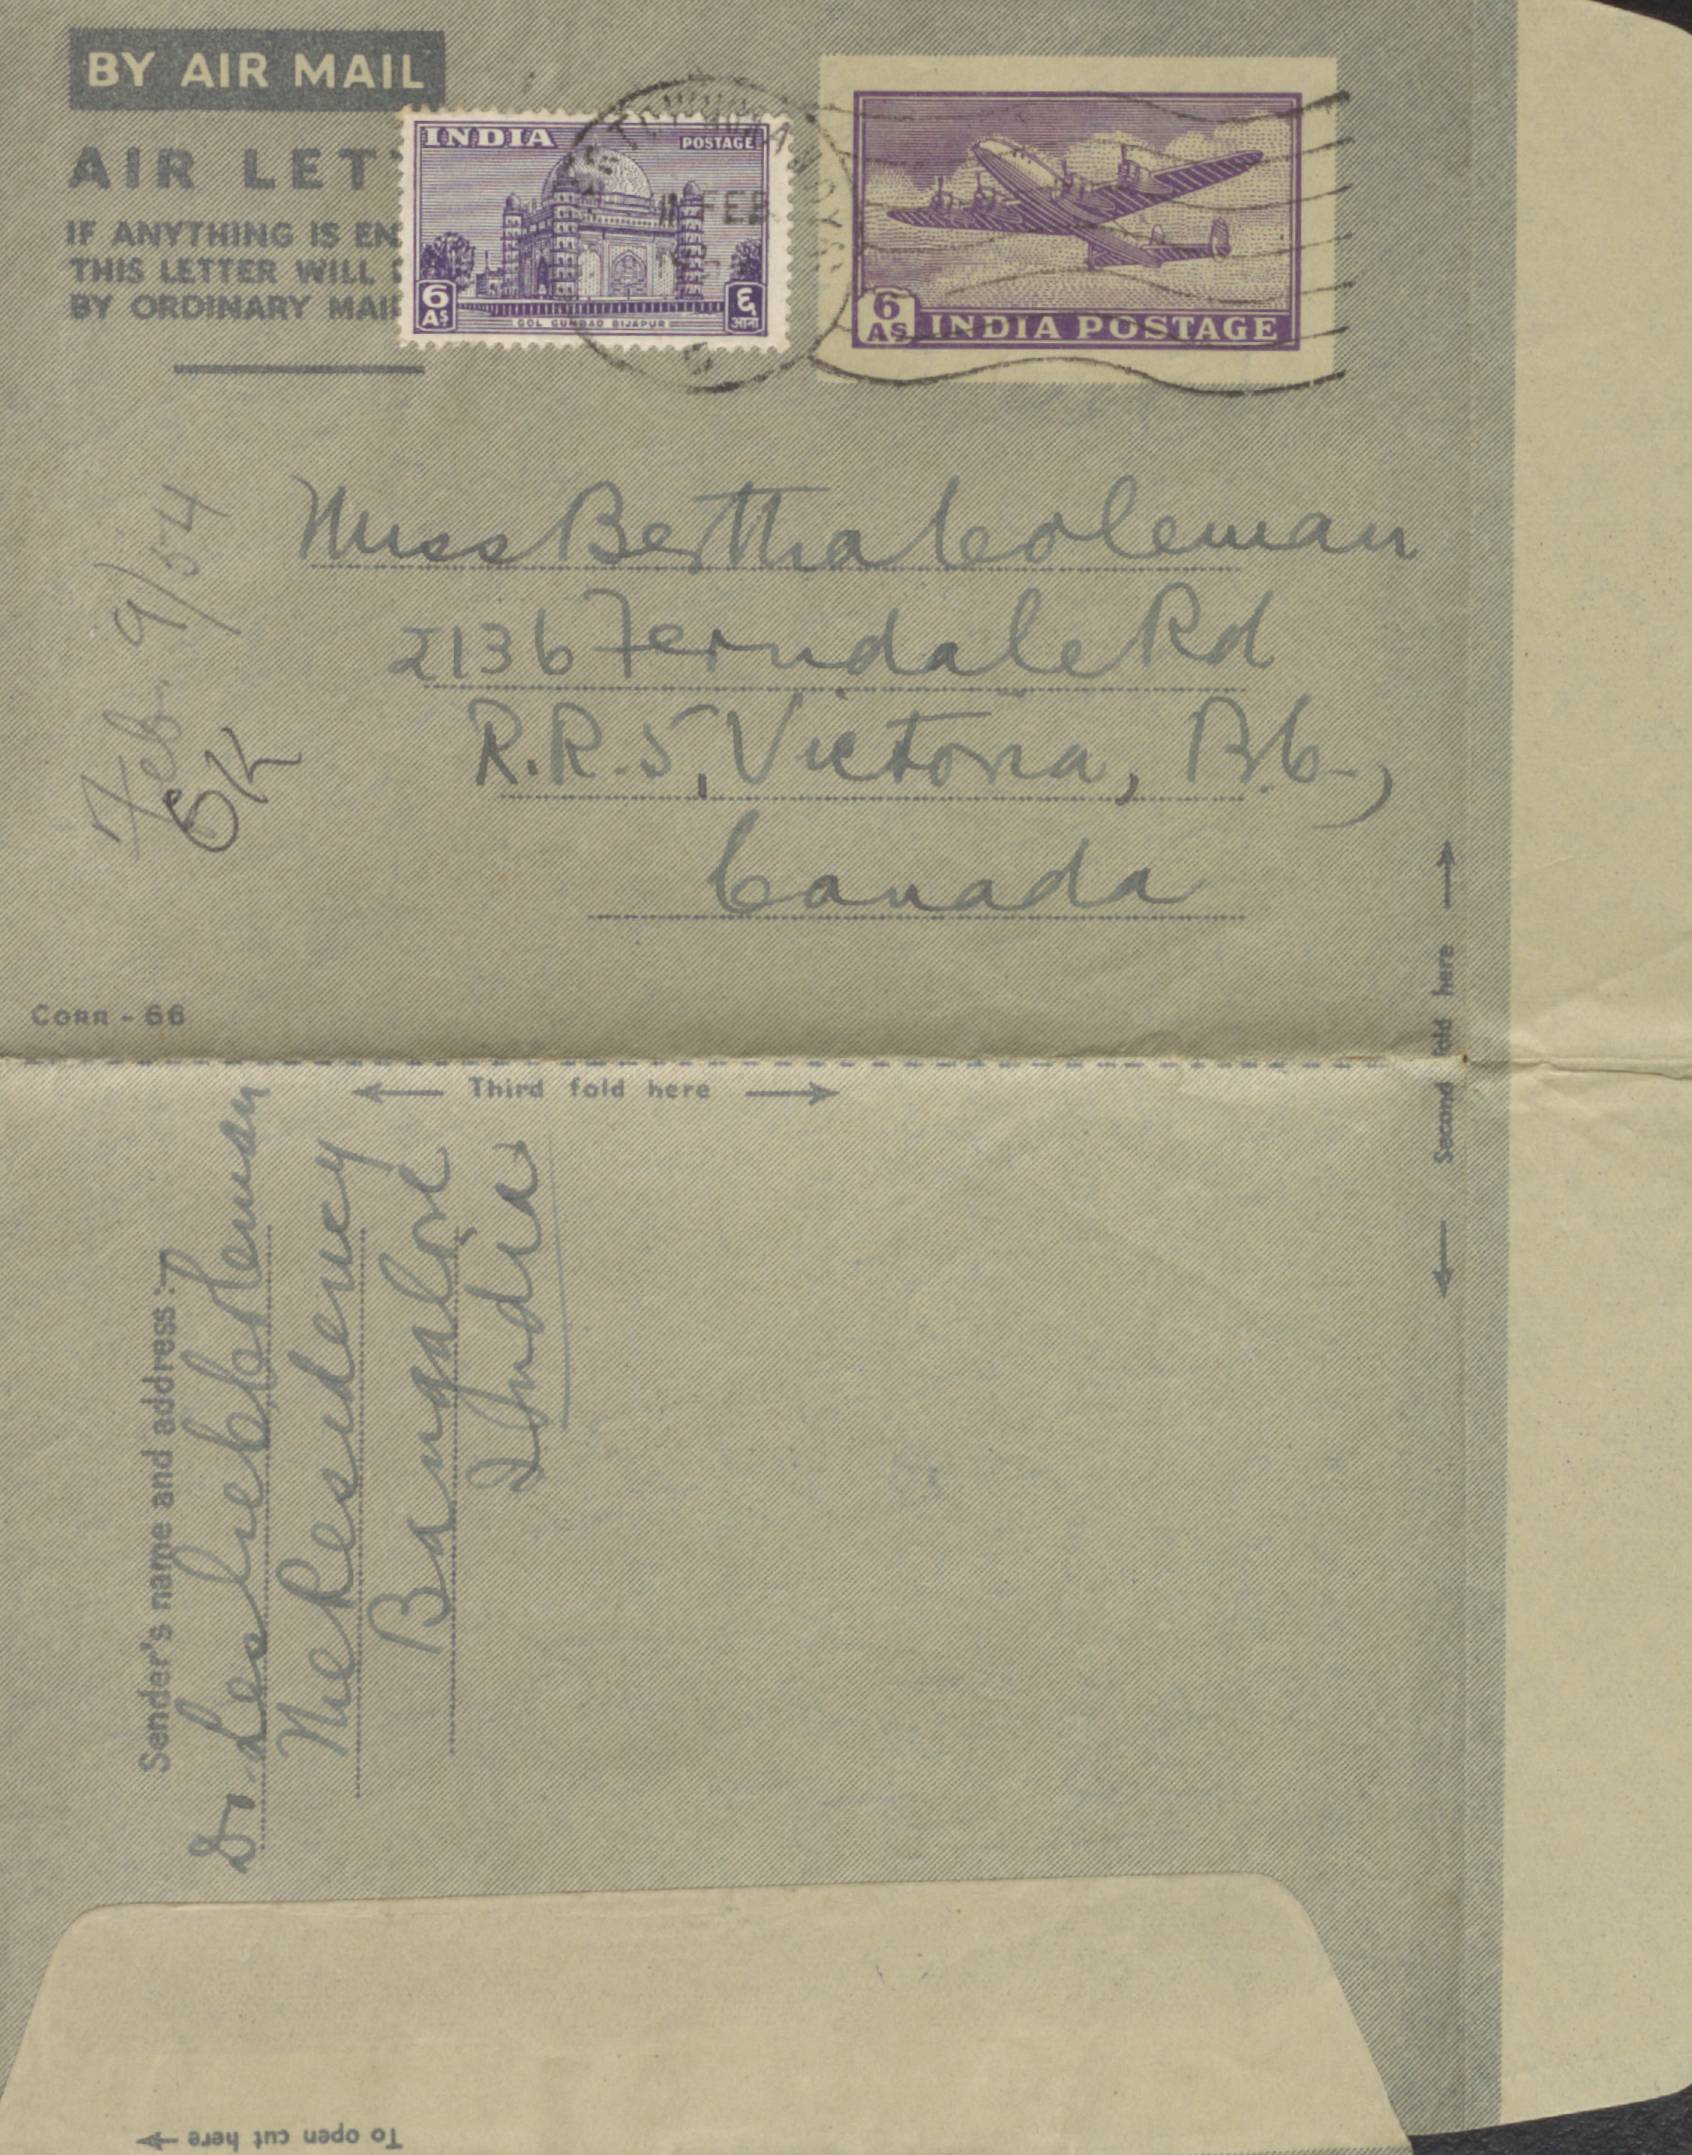 BY AIR MAIL
AIR LET
IF ANYTHING IS EN
THIS LETTER WILL
BY ORDINARY MAI
INDIA POSTAGE
6 As ६ आना
GOL GUMBAD BIJAPUR
FEB
6 As INDIA POSTAGE
Feb. 9/54
Miss Bertha Coleman
2136 Ferndale Rd
R.R.5, Victoria, B.C.,
Canada
CORR - 66
Second fold here
Third fold here
Sender's name and address:-
Dr. Leslie C. Coleman
The Residency
Bangalore
India
To open cut here